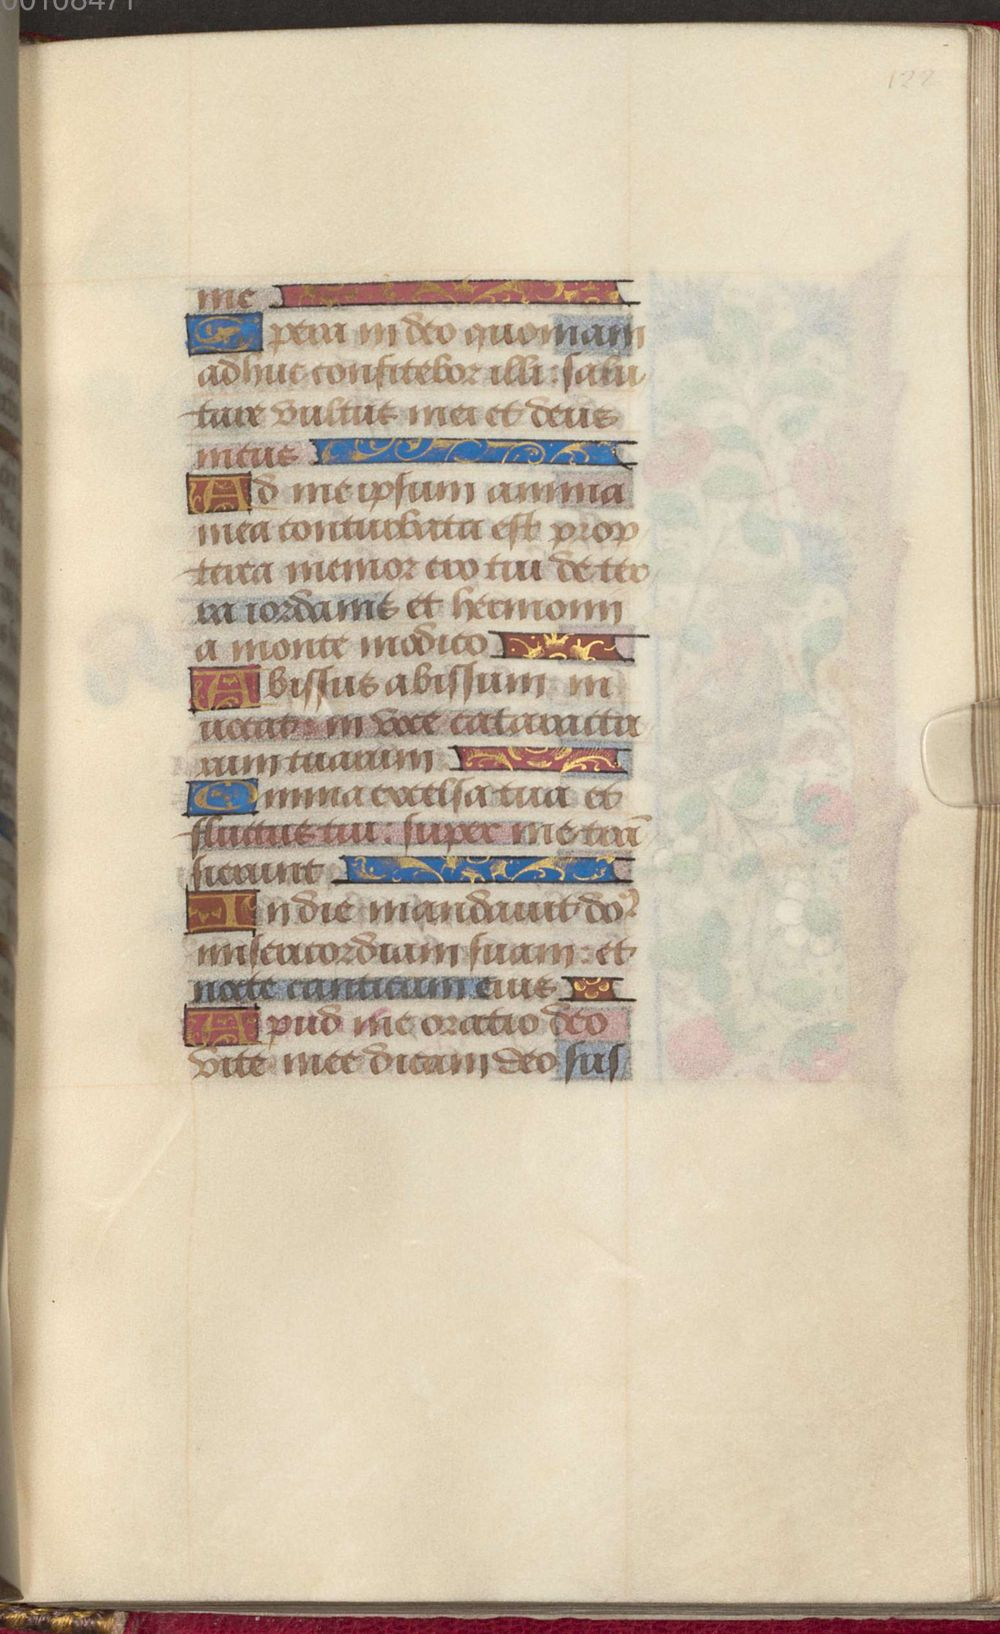 00108471
122
me
Spera in deo quoniam
adhuc confitebor illi: salu
tare vultus mei et deus
meus
Ad me ipsum anima
mea conturbata est prop
terea memor ero tui de ter
ra iordanis et hermonij
a monte modico
Abissus abissum in
uocat: in voce cataractа
rum tuarum
Omnia excelsa tua et
fluctus tui: super me trā
sierunt
In die mandauit do
misericordiam suam: et
nocte canticum eius
Apud me oratio deo
vite mee dicam deo sus